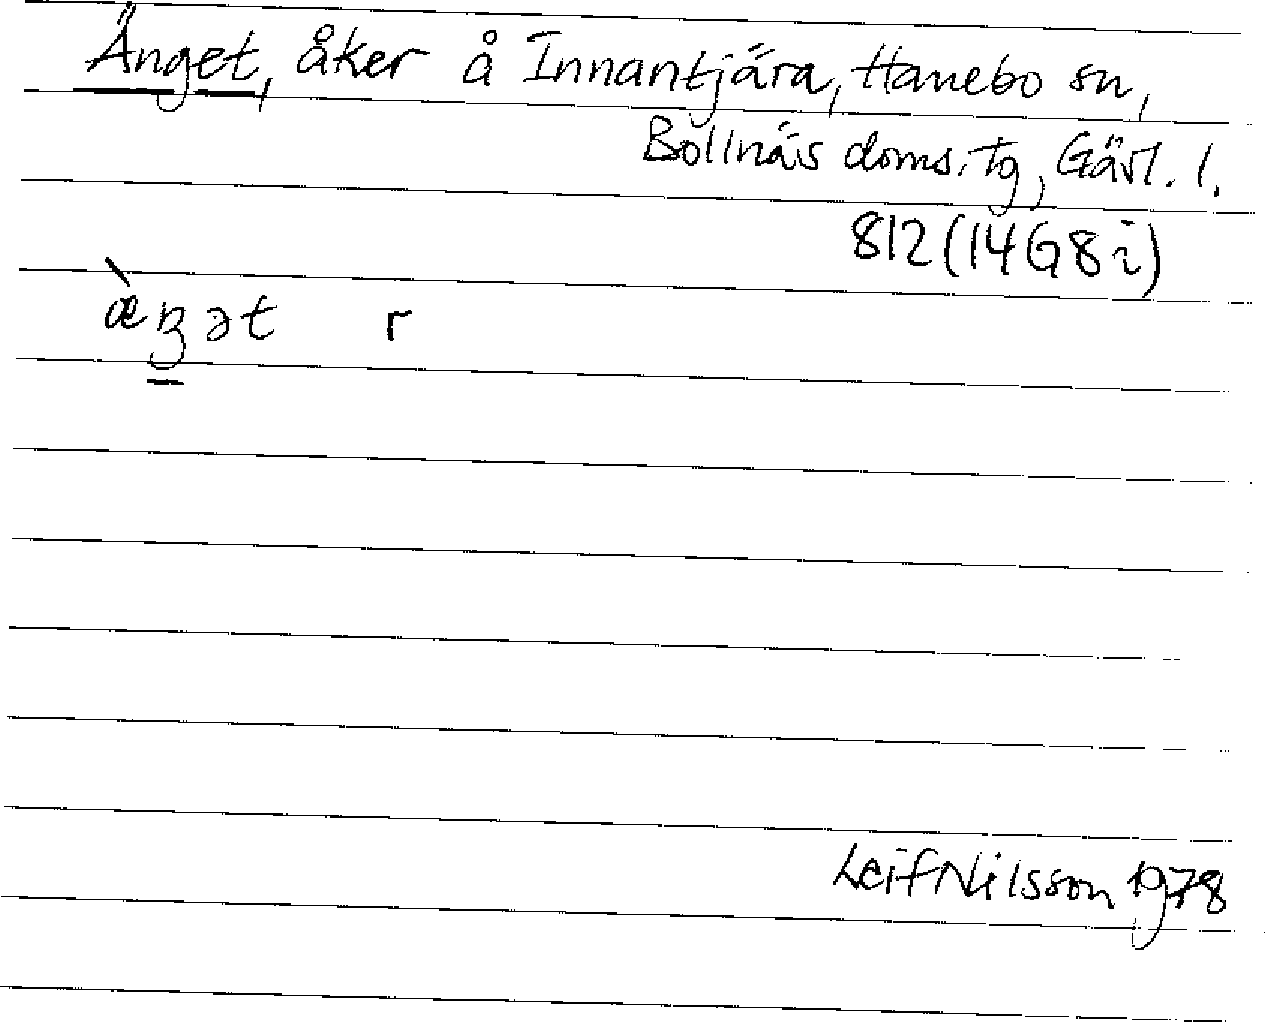 Änget, åker å Innantjära, Hanebo sn,
Bollnäs doms.tg, Gävl. l.
812 (14G8i)
æ̀ŋət r
Leif Nilsson 1978